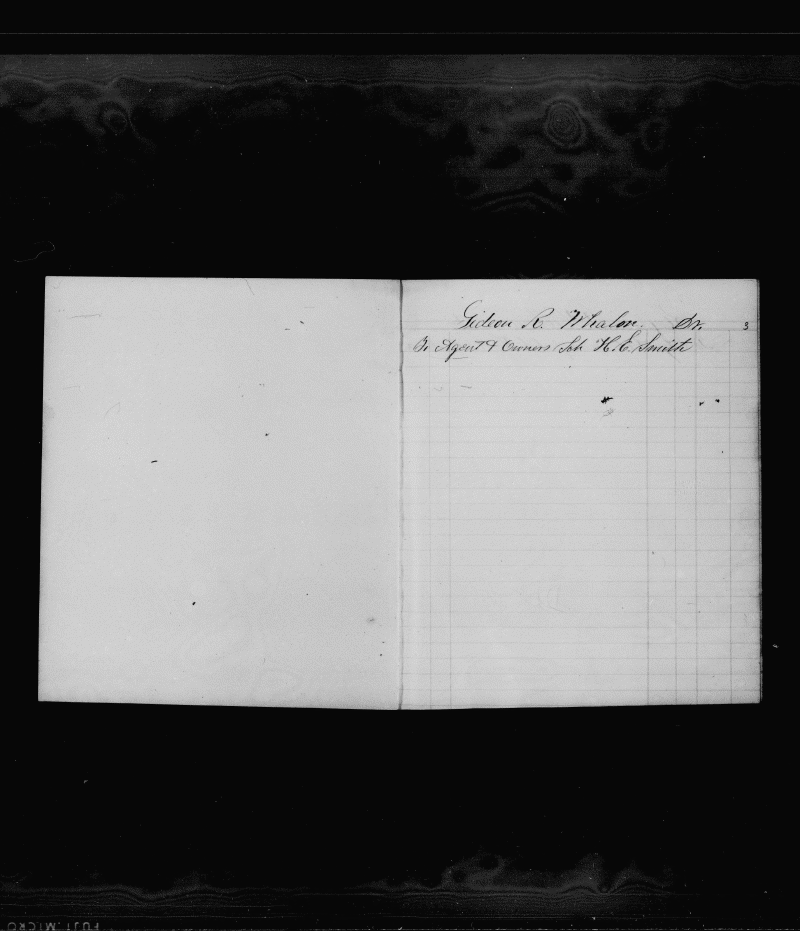 Gideon R. Whalon. Dr. 3
To Agent & Owners Sch H. E. Smith
FUJI MICRO